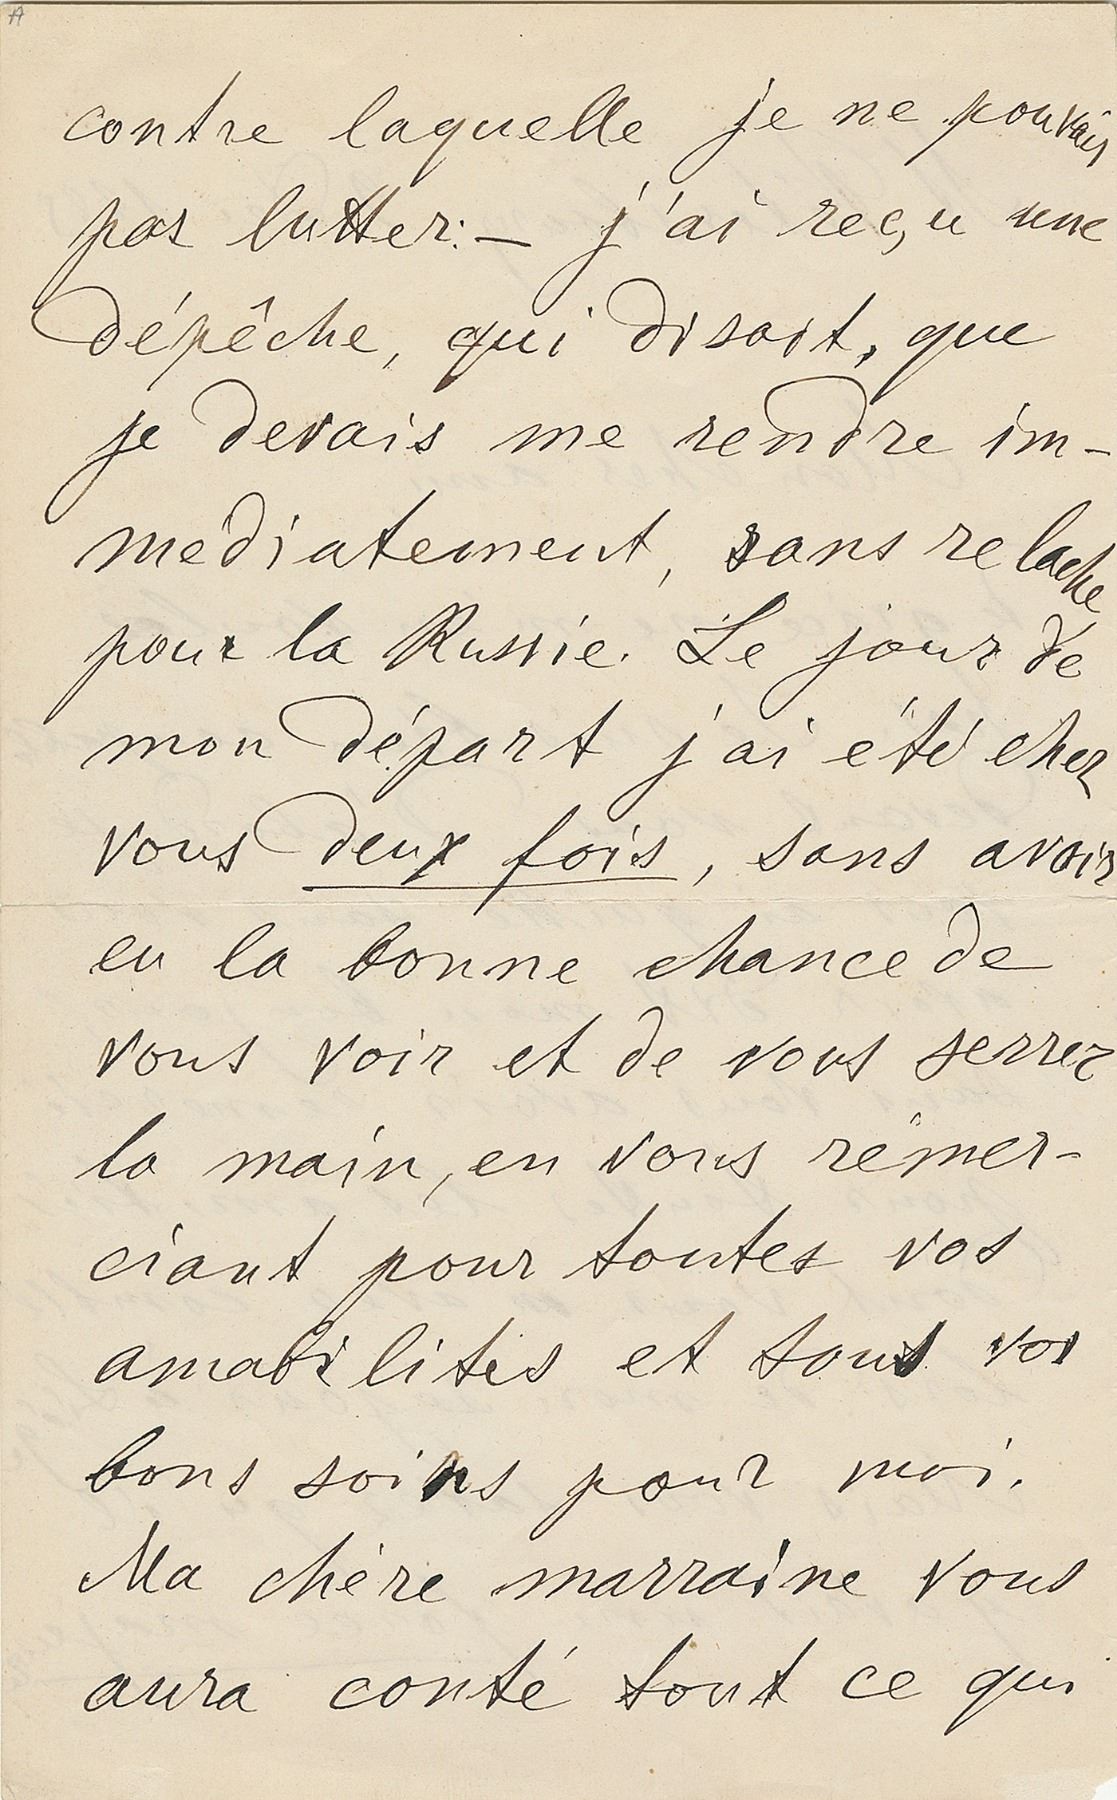 contre laquelle je ne pouvais
pas lutter: — j'ai reçu une
dépêche, qui disait, que
je devais me rendre im-
médiatement, sans relache
pour la Russie. Le jour de
mon départ j'ai été chez
vous deux fois, sans avoir
eu la bonne chance de
vous voir et de vous serrer
la main, en vous rémer-
ciant pour toutes vos
amabilités et tous vos
bons soins pour moi.
Ma chère marraine vous
aura conté tout ce qui